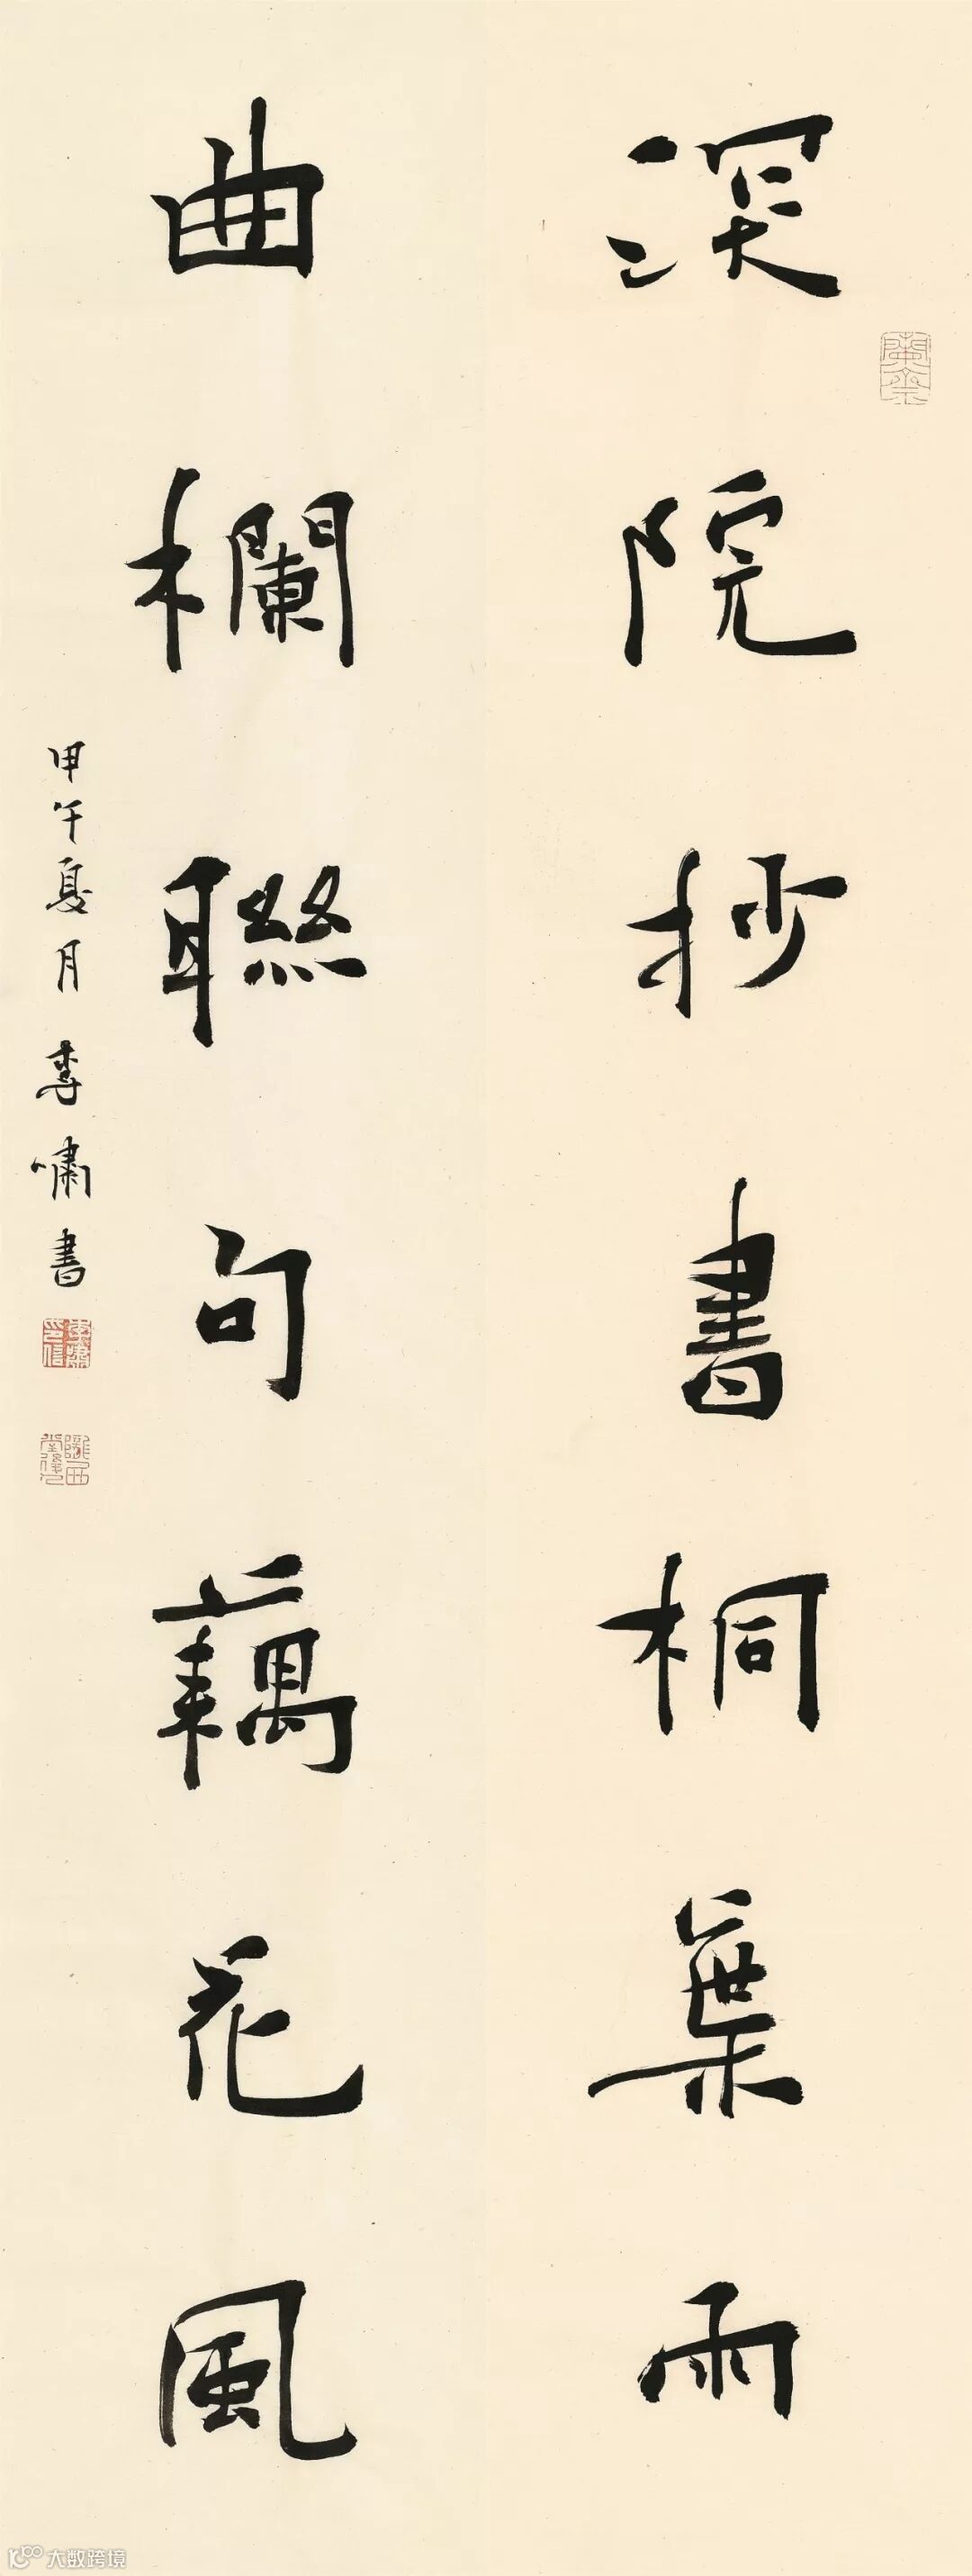 深院抄書桐葉雨
曲欄聯句藕花風
甲午夏月李嘯書
李嘯印信
大数跨境